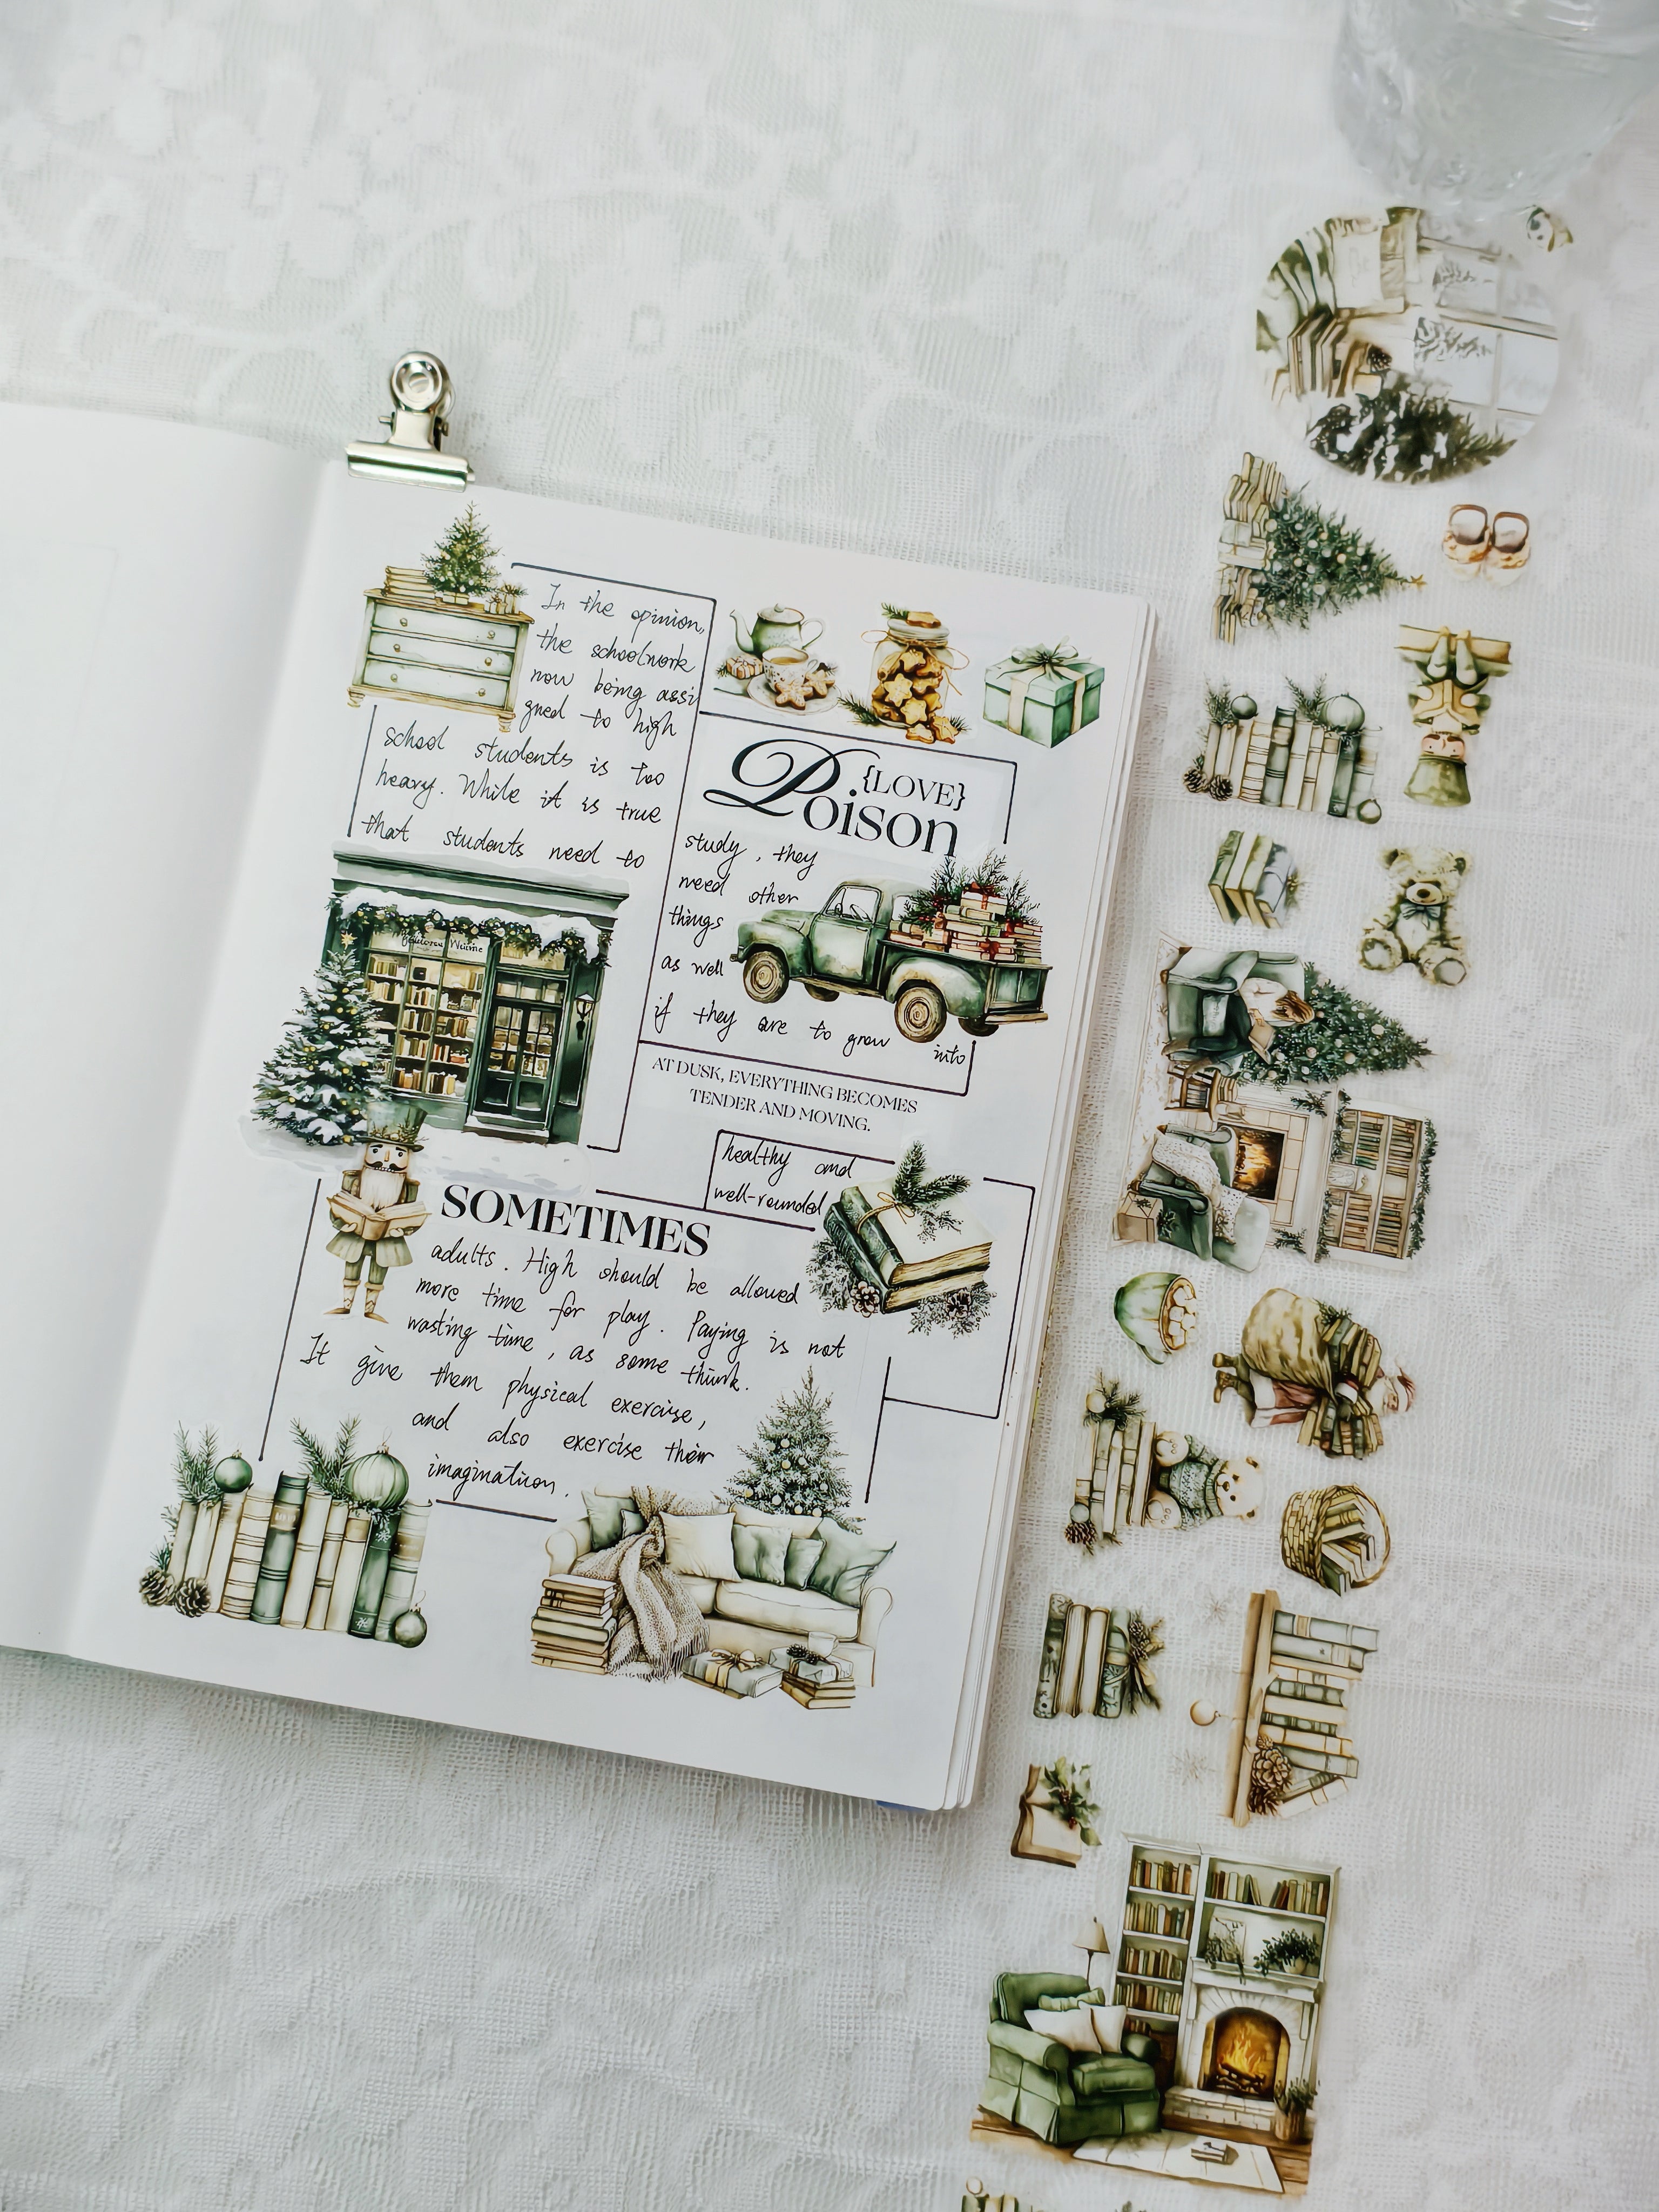 In the opinion,
the schoolwork
now being assi
gned to high
school students is too
heavy. While it is true
that students need to
{LOVE}
Poison
study, they
need other
things
as well
if they are to grow into
AT DUSK, EVERYTHING BECOMES
TENDER AND MOVING.
healthy and
well-rounded
SOMETIMES
adults. High should be allowed
more time for play. Paying is not
wasting time, as some think.
It give them physical exercise,
and also exercise their
imagination.